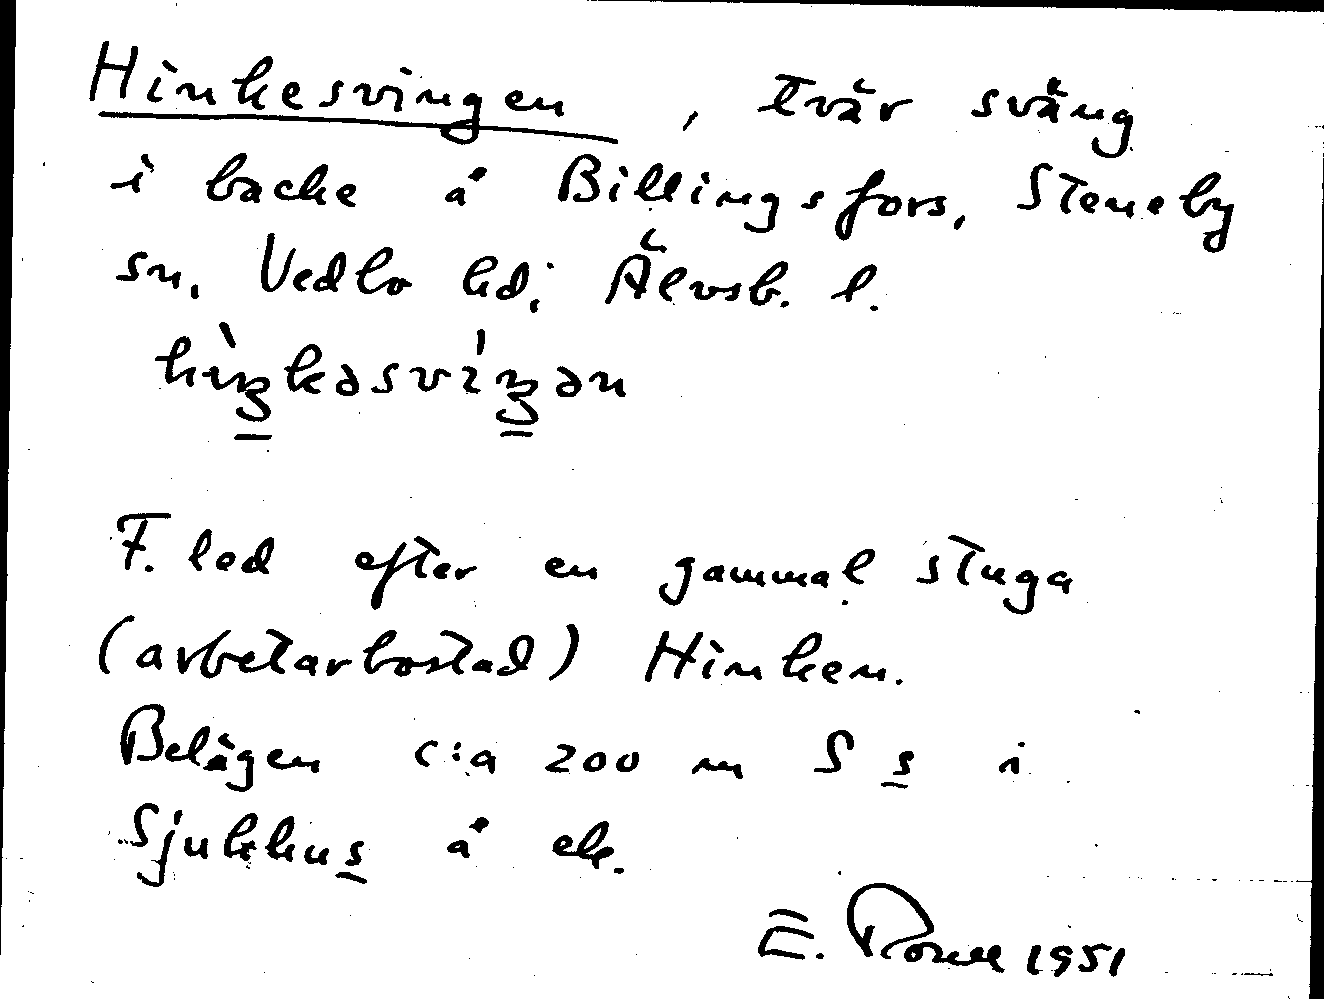 Hinkesvingen, tvär sväng
i backe å Billingsfors, Steneby
sn, Vedbo hd, Älvsb. l.
hìŋkəsvíŋən
F. led efter en gammal stuga
(arbetarbostad) Hinken.
Belägen c:a 200 m S s i
Sjukhus å ek.
E. 1951